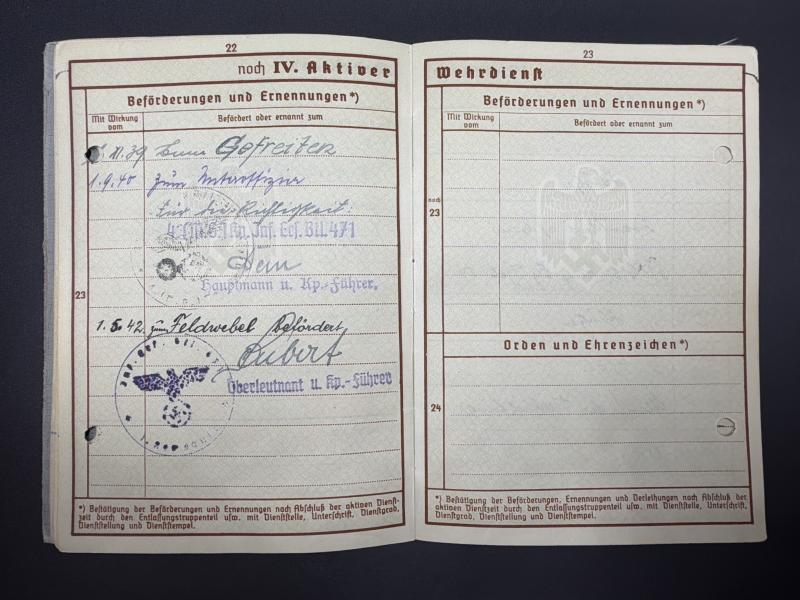 22
noch IV. Aktiver
Beförderungen und Ernennungen*)
Mit Wirkung vom
Befördert oder ernannt zum
XI. 39 zum Gefreiten
1. 9. 40 zum Unteroffizier
Für die Richtigkeit:
Kp. Inf. Btl. 471
Hauptmann u. Kp.-Führer.
23
1. 5. 42. zum Feldwebel befördert
Oberleutnant u. Kp.-Führer
*) Bestätigung der Beförderungen und Ernennungen nach Abschluß der aktiven Dienst-
zeit durch den Entlassungstruppenteil usw. mit Dienststelle, Unterschrift, Dienstgrad,
Dienststellung und Dienststempel.
23
Wehrdienst
Beförderungen und Ernennungen*)
Mit Wirkung vom
Befördert oder ernannt zum
noch
23
Orden und Ehrenzeichen*)
24
*) Bestätigung der Beförderungen, Ernennungen und Verleihungen nach Abschluß der
aktiven Dienstzeit durch den Entlassungstruppenteil usw. mit Dienststelle, Unterschrift, Dienstgrad,
Dienststellung und Dienststempel.